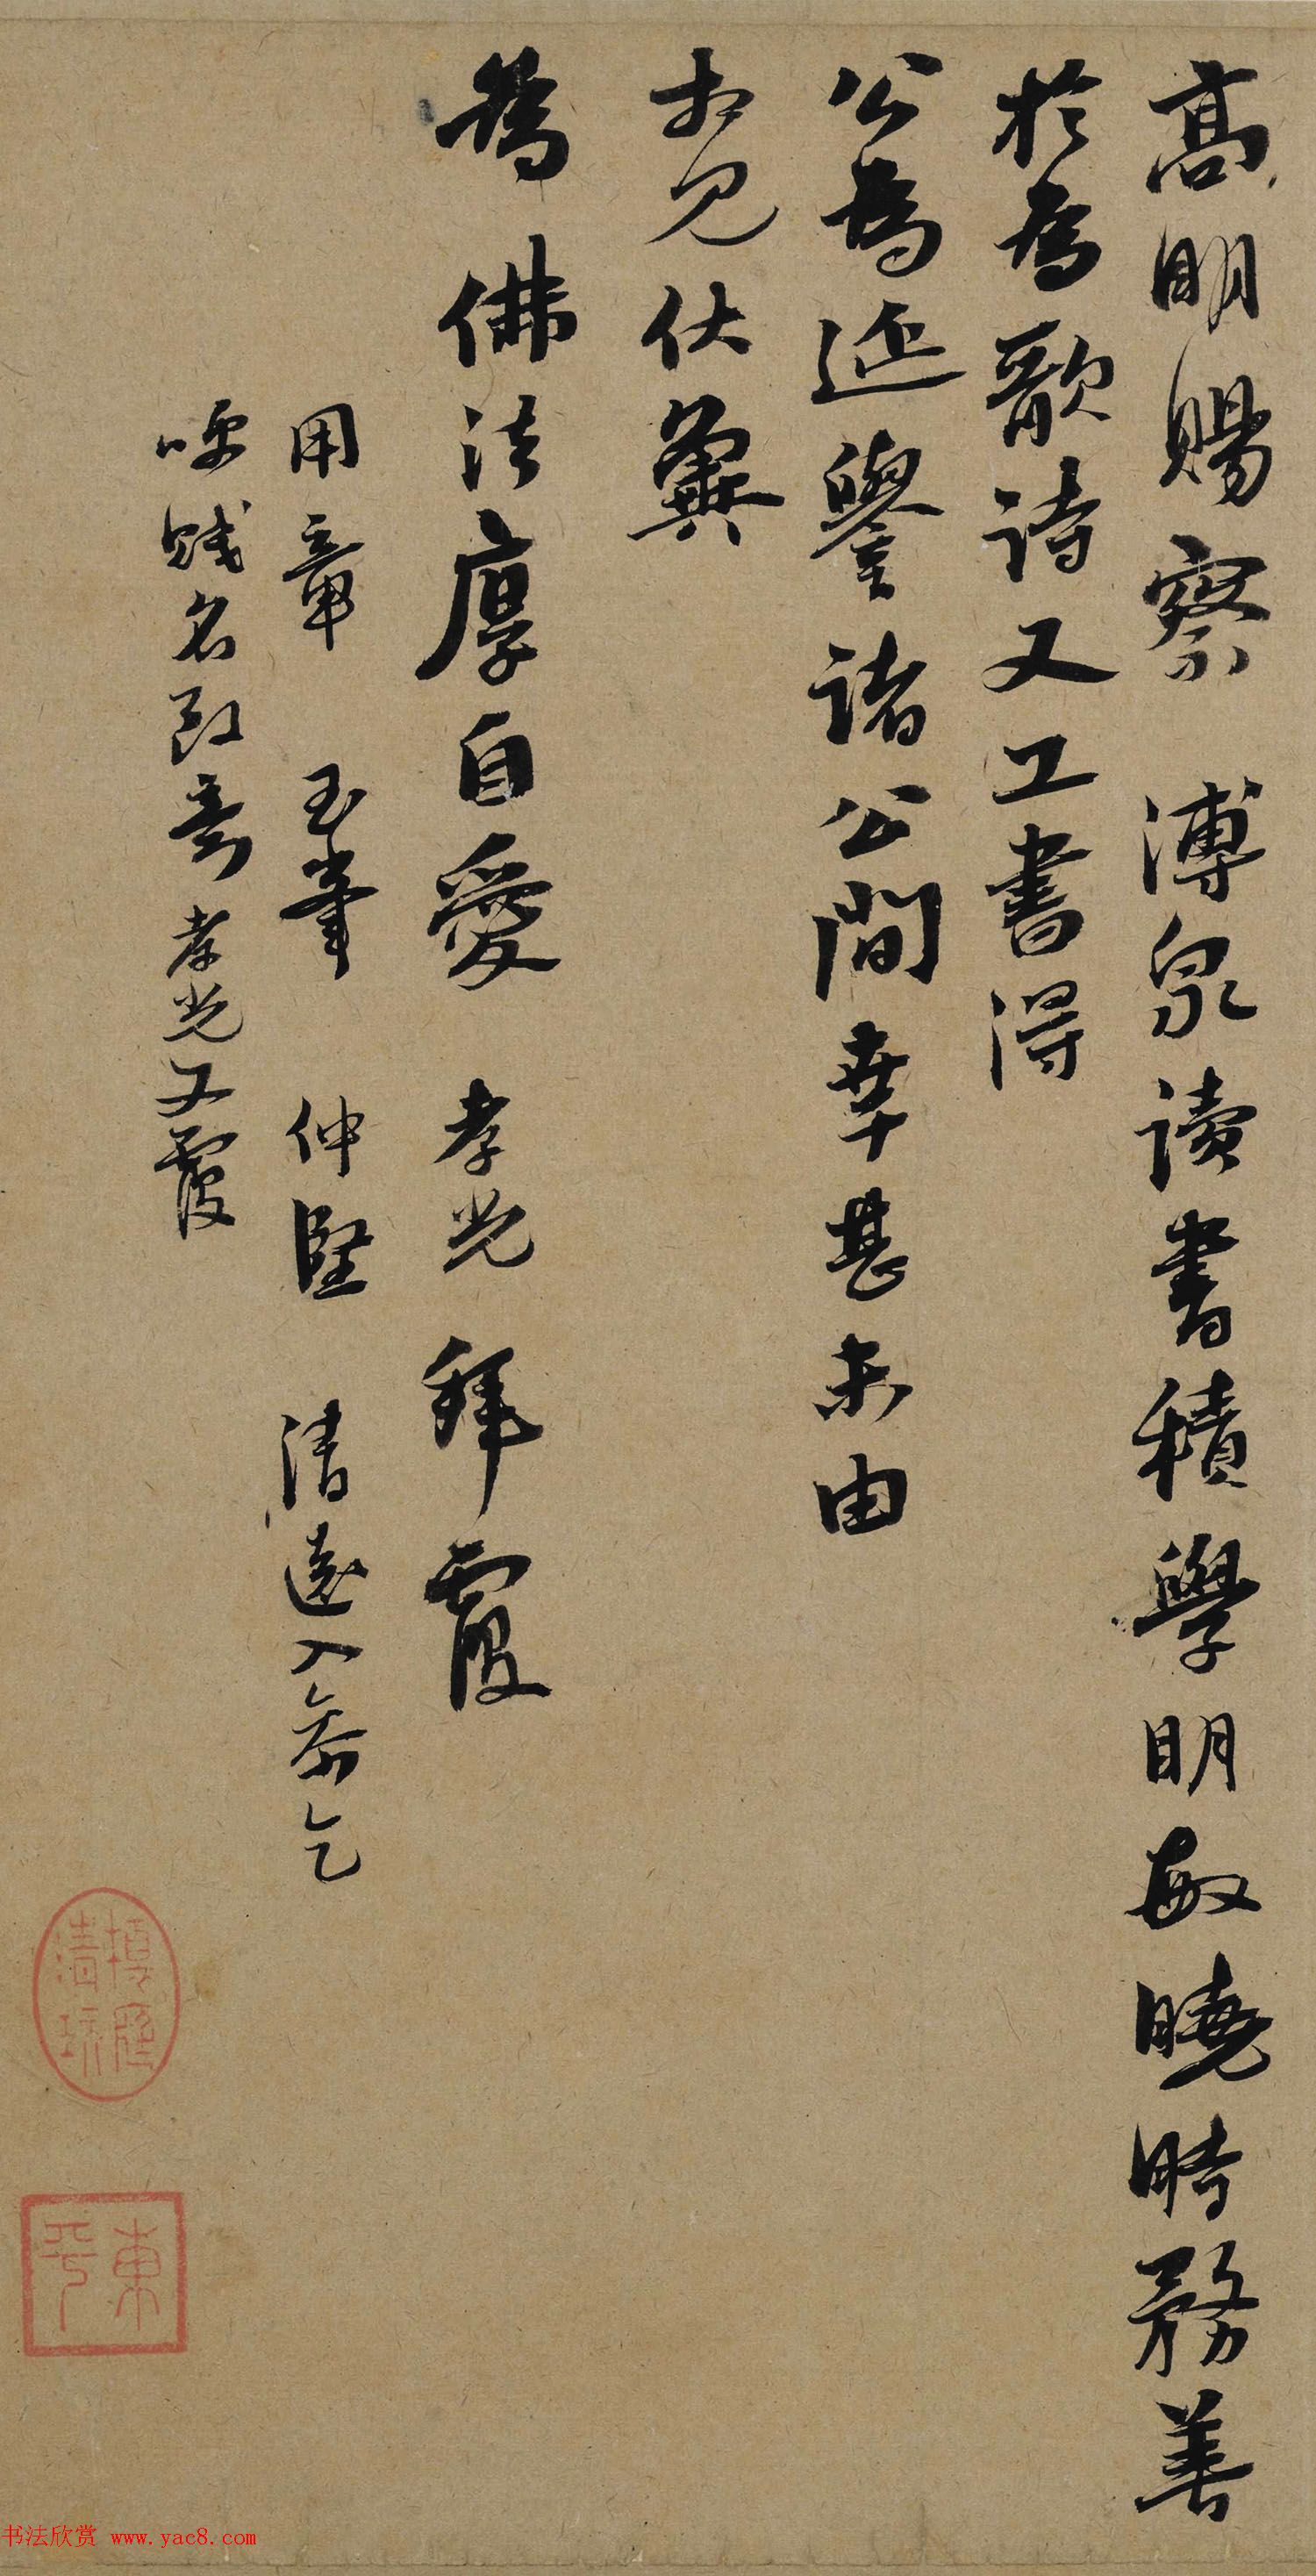 高明賜察 溥泉讀書積學明敏曉時務善
於為歌詩又工書得
公為延譽諸公間幸甚未由
相見伏冀
為佛法厚自愛 孝光拜覆
用章 玉峯 仲堅 清遠入參乞
呼賤名致意 孝光又覆
東平
书法欣赏 www.yac8.com